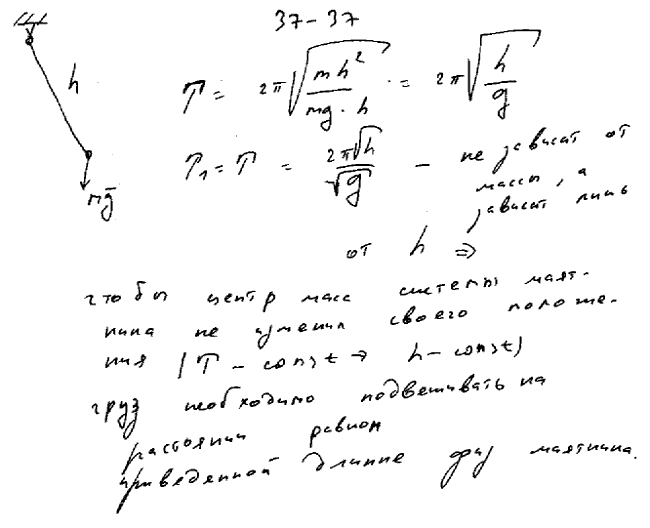 37-37
h
T = 2π√(mh²/(mg·h)) = 2π√(h/g)
T₁ = T = 2π√h/√g — не зависит от
массы, а
зависит лишь
mg⃗
от h ⇒
чтобы центр масс системы маят-
ника не изменил своего положе-
ния (T - const → h - const)
груз необходимо подвешивать на
растоянии равном
приведенной длинне физ маятника.